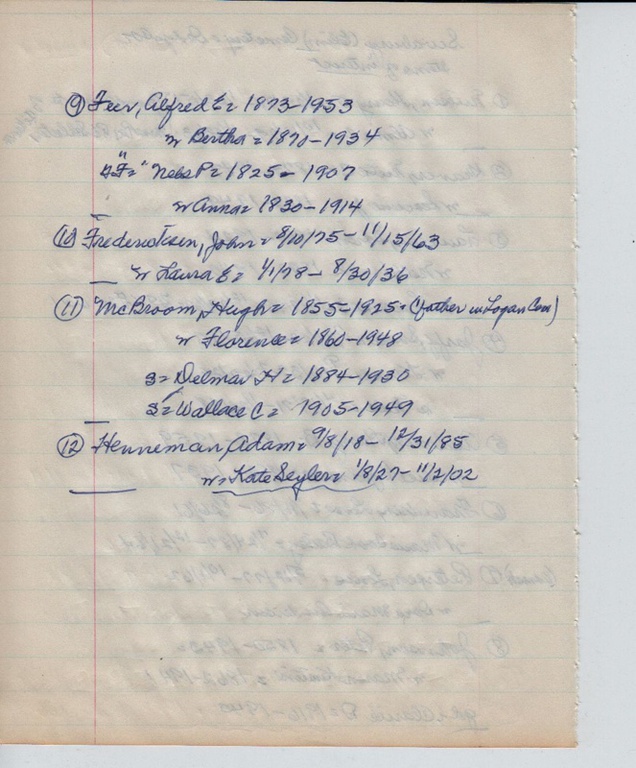 ⑨ Feer, Alfred E = 1873-1953
w Bertha = 1870-1934
"F" = Nels P = 1825 - 1907
w Anna = 1830-1914
⑩ Frederictsen, John = 8/10/75 - 11/15/63
w Laura E = 1/1/78 - 8/30/36
⑪ McBroom, Hugh = 1855-1925 + (father in Logan Cem)
w Florence = 1860-1948
s = Delmar H = 1884-1930
s = Wallace C = 1905-1949
⑫ Henneman, Adam = 9/8/18 - 12/31/85
w = Kate Seyler = 1/8/27 - 11/2/02